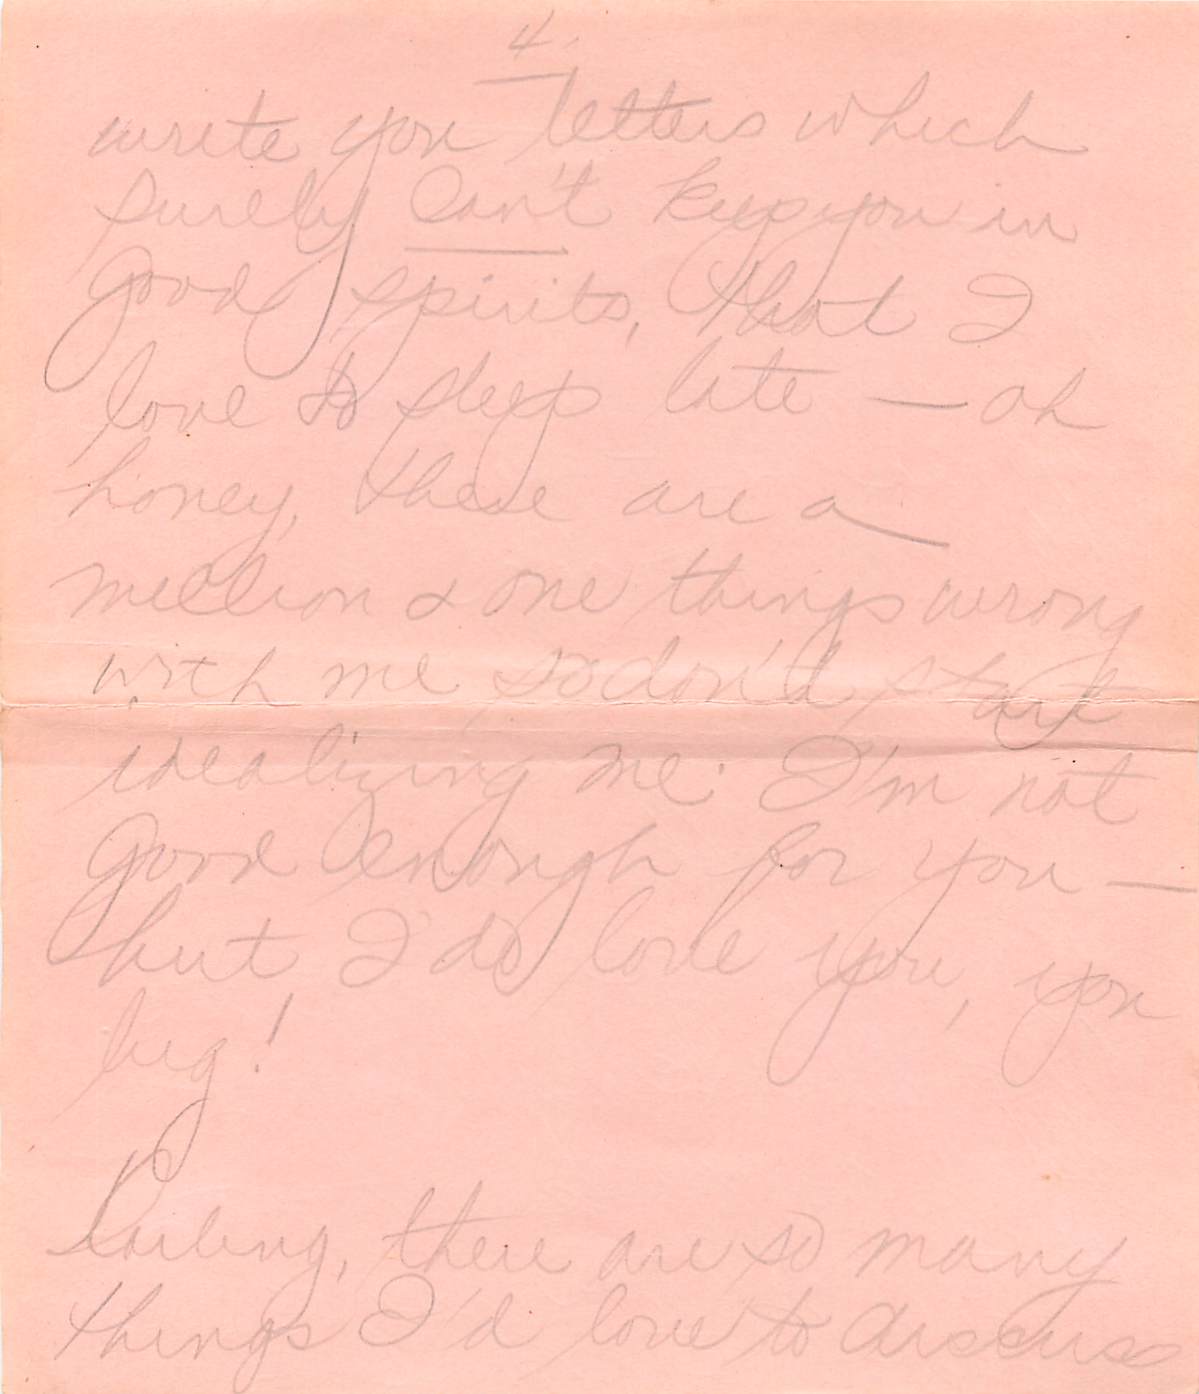 4.
write you letters which
surely can't keep you in
good spirits, that I
love to sleep late — oh
honey, there are a
million & one things wrong
with me so don't start
idealizing me. I'm not
good enough for you —
but I do love you, you
big!
Darling, there are so many
things I'd love to discuss